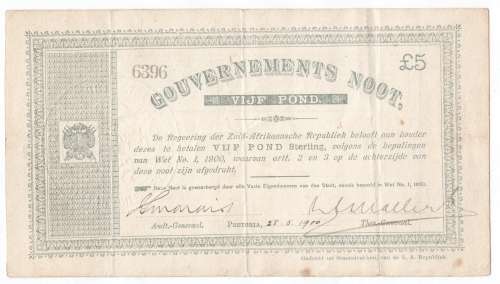 6396
£5
GOUVERNEMENTS NOOT,
VIJF POND.
De Regeering der Zuid-Afrikaansche Republiek belooft aan houder
dezes te betalen VIJF POND Sterling, volgens de bepalingen
van Wet No. 1, 1900, waarvan artt. 2 en 3 op de achterzijde van
deze noot zijn afgedrukt.
Deze Noot is gewaarborgd door alle Vaste Eigendommen van den Staat, zooals bepaald in Wet No. 1, 1900.
Audt.-Generaal. PRETORIA, 28. 5. 1900 Thes.-Generaal.
Gedrukt ter Staatsdrukkerij van de Z. A. Republiek